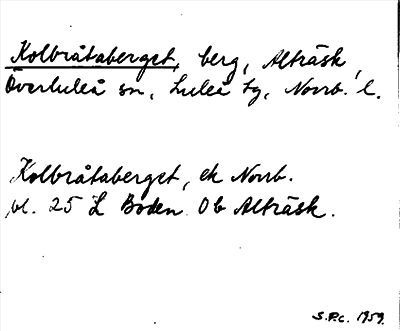 Kolbråtaberget, berg, Alträsk,
Överluleå sn, Luleå tg, Norrb. l.
Kolbråtaberget, ek Norrb.
bl. 25 L Boden Ob Alträsk.
S.P.c. 1959.